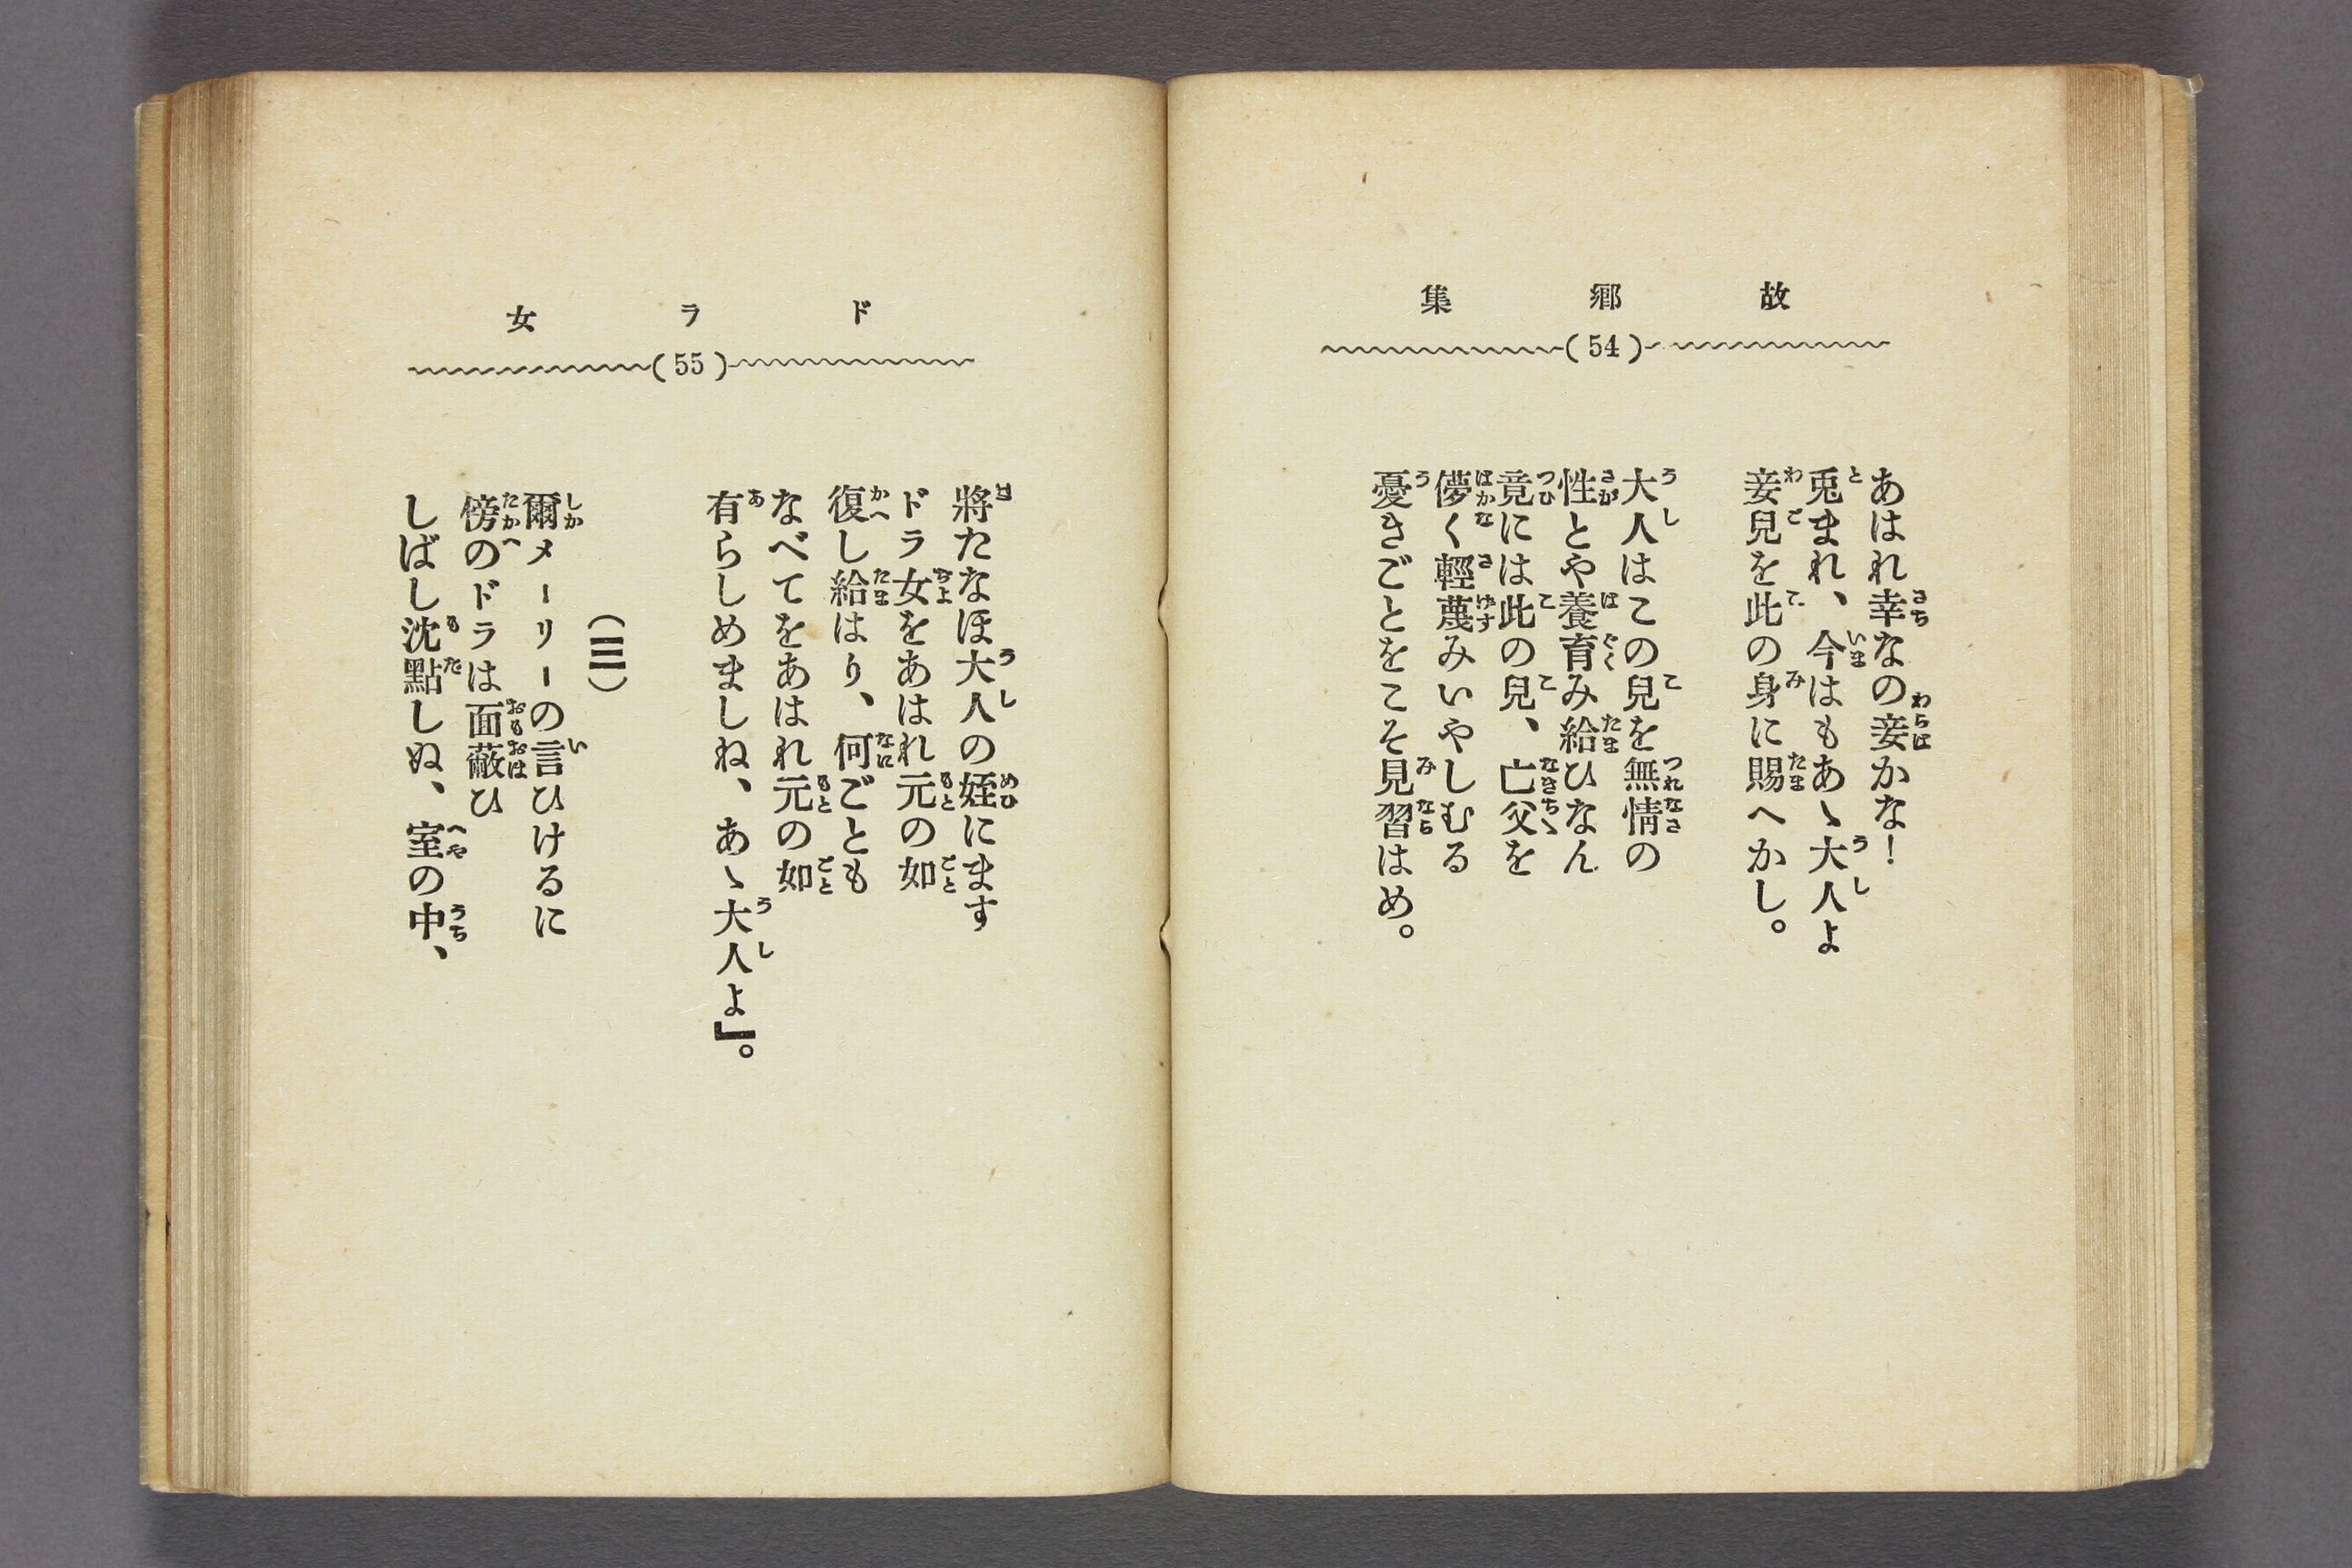 故郷集
(54)
あはれ幸なの妾かな！
兎まれ、今はもあゝ大人よ
妾兒を此の身に賜へかし。
大人はこの兒を無情の
性とや養育み給ひなん
竟には此の兒、亡父を
儚く輕蔑みいやしむる
憂きごとをこそ見習はめ。
ドラ女
(55)
將たなほ大人の姪にます
ドラ女をあはれ元の如
復し給はり、何ごとも
なべてをあはれ元の如
有らしめましね、あゝ大人よ』。
(三)
爾メーリーの言ひけるに
傍のドラは面蔽ひ
しばし沈點しぬ、室の中、